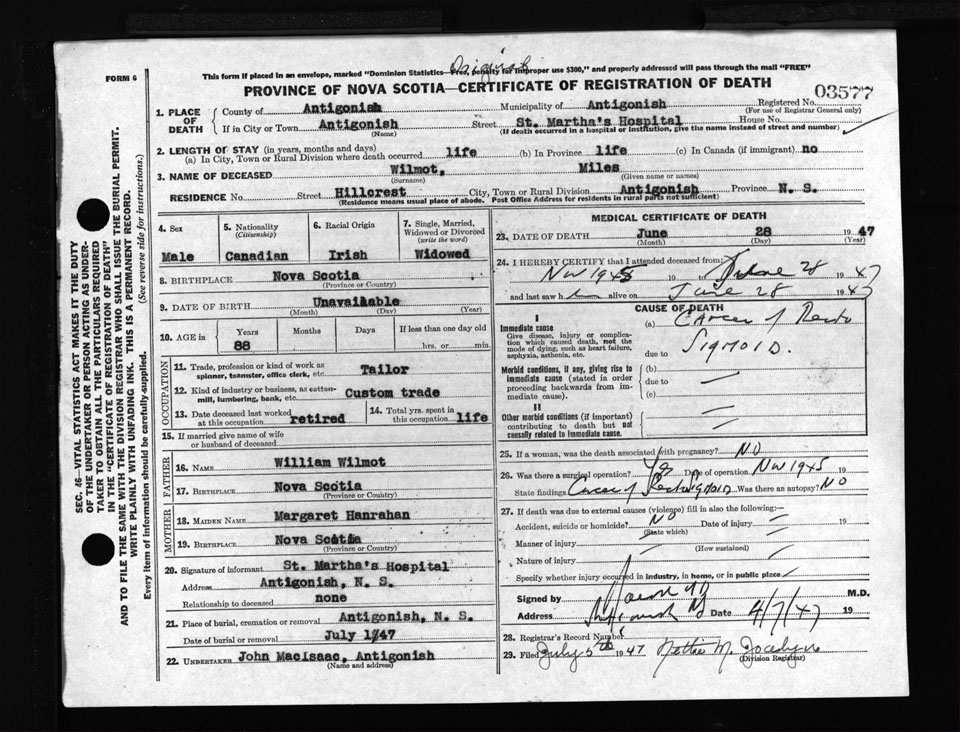 FORM 6
Original
This form if placed in an envelope, marked "Dominion Statistics—Free, penalty for improper use $300," and properly addressed will pass through the mail "FREE"
PROVINCE OF NOVA SCOTIA—CERTIFICATE OF REGISTRATION OF DEATH
03577
1. PLACE OF DEATH County of Antigonish Municipality of Antigonish Registered No.
(For use of Registrar General only)
If in City or Town Antigonish Street St. Martha's Hospital House No.
(Name) (If death occurred in a hospital or institution, give the name instead of street and number)
2. LENGTH OF STAY (in years, months and days)
(a) In City, Town or Rural Division where death occurred life (b) In Province life (c) In Canada (if immigrant) no
3. NAME OF DECEASED Wilmot, Miles
(Surname) (Given name or names)
RESIDENCE No. Street Hillcrest City, Town or Rural Division Antigonish Province N. S.
(Residence means usual place of abode. Post Office Address for residents in rural parts not sufficient)
4. Sex 5. Nationality (Citizenship) 6. Racial Origin 7. Single, Married, Widowed or Divorced (write the word)
Male Canadian Irish Widowed
8. BIRTHPLACE Nova Scotia
(Province or Country)
9. DATE OF BIRTH Unavailable
(Month) (Day) (Year)
10. AGE in Years Months Days If less than one day old
88 hrs. or min.
OCCUPATION
11. Trade, profession or kind of work as spinner, teamster, office clerk, etc. Tailor
12. Kind of industry or business, as cotton-mill, lumbering, bank, etc. Custom trade
13. Date deceased last worked at this occupation retired 14. Total yrs. spent in this occupation life
15. If married give name of wife or husband of deceased
FATHER
16. NAME William Wilmot
17. BIRTHPLACE Nova Scotia
MOTHER
18. MAIDEN NAME Margaret Hanrahan
19. BIRTHPLACE Nova Scotia
(Province or Country)
20. Signature of informant St. Martha's Hospital
Address Antigonish, N. S.
Relationship to deceased none
21. Place of burial, cremation or removal Antigonish, N. S.
Date of burial or removal July 1/47
22. UNDERTAKER John MacIsaac, Antigonish
(Name and address)
MEDICAL CERTIFICATE OF DEATH
23. DATE OF DEATH June 28 1947
(Month) (Day) (Year)
24. I HEREBY CERTIFY that I attended deceased from:
Nov 1945 19 to June 28 1947
and last saw him alive on June 28 1947
CAUSE OF DEATH
I
Immediate cause (a) Cancer of Recto
Give disease, injury or complication which caused death, not the mode of dying, such as heart failure, asphyxia, asthenia, etc.
due to Sigmoid.
Morbid conditions, if any, giving rise to immediate cause (stated in order proceeding backwards from immediate cause).
(b)
due to
(c)
II
Other morbid conditions (if important) contributing to death but not causally related to immediate cause.
25. If a woman, was the death associated with pregnancy? NO
26. Was there a surgical operation? Yes Date of operation Nov 1945 19
State findings Cancer of Rectosigmoid Was there an autopsy? NO
27. If death was due to external causes (violence) fill in also the following:—
Accident, suicide or homicide? NO Date of injury 19
(State which)
Manner of injury
(How sustained)
Nature of injury
Specify whether injury occurred in industry, in home, or in public place
Signed by M.D.
Address Antigonish NS Date 4/7/47 19
28. Registrar's Record Number
29. Filed July 5th 1947 Nettie M. Jocelyn
(Division Registrar)
SEC. 46—VITAL STATISTICS ACT MAKES IT THE DUTY
OF THE UNDERTAKER OR PERSON ACTING AS UNDER-
TAKER TO OBTAIN ALL THE PARTICULARS REQUIRED
IN THE "CERTIFICATE OF REGISTRATION OF DEATH"
AND TO FILE THE SAME WITH THE DIVISION REGISTRAR WHO SHALL ISSUE THE BURIAL PERMIT.
WRITE PLAINLY WITH UNFADING INK. THIS IS A PERMANENT RECORD.
Every item of information should be carefully supplied. (See reverse side for instructions.)